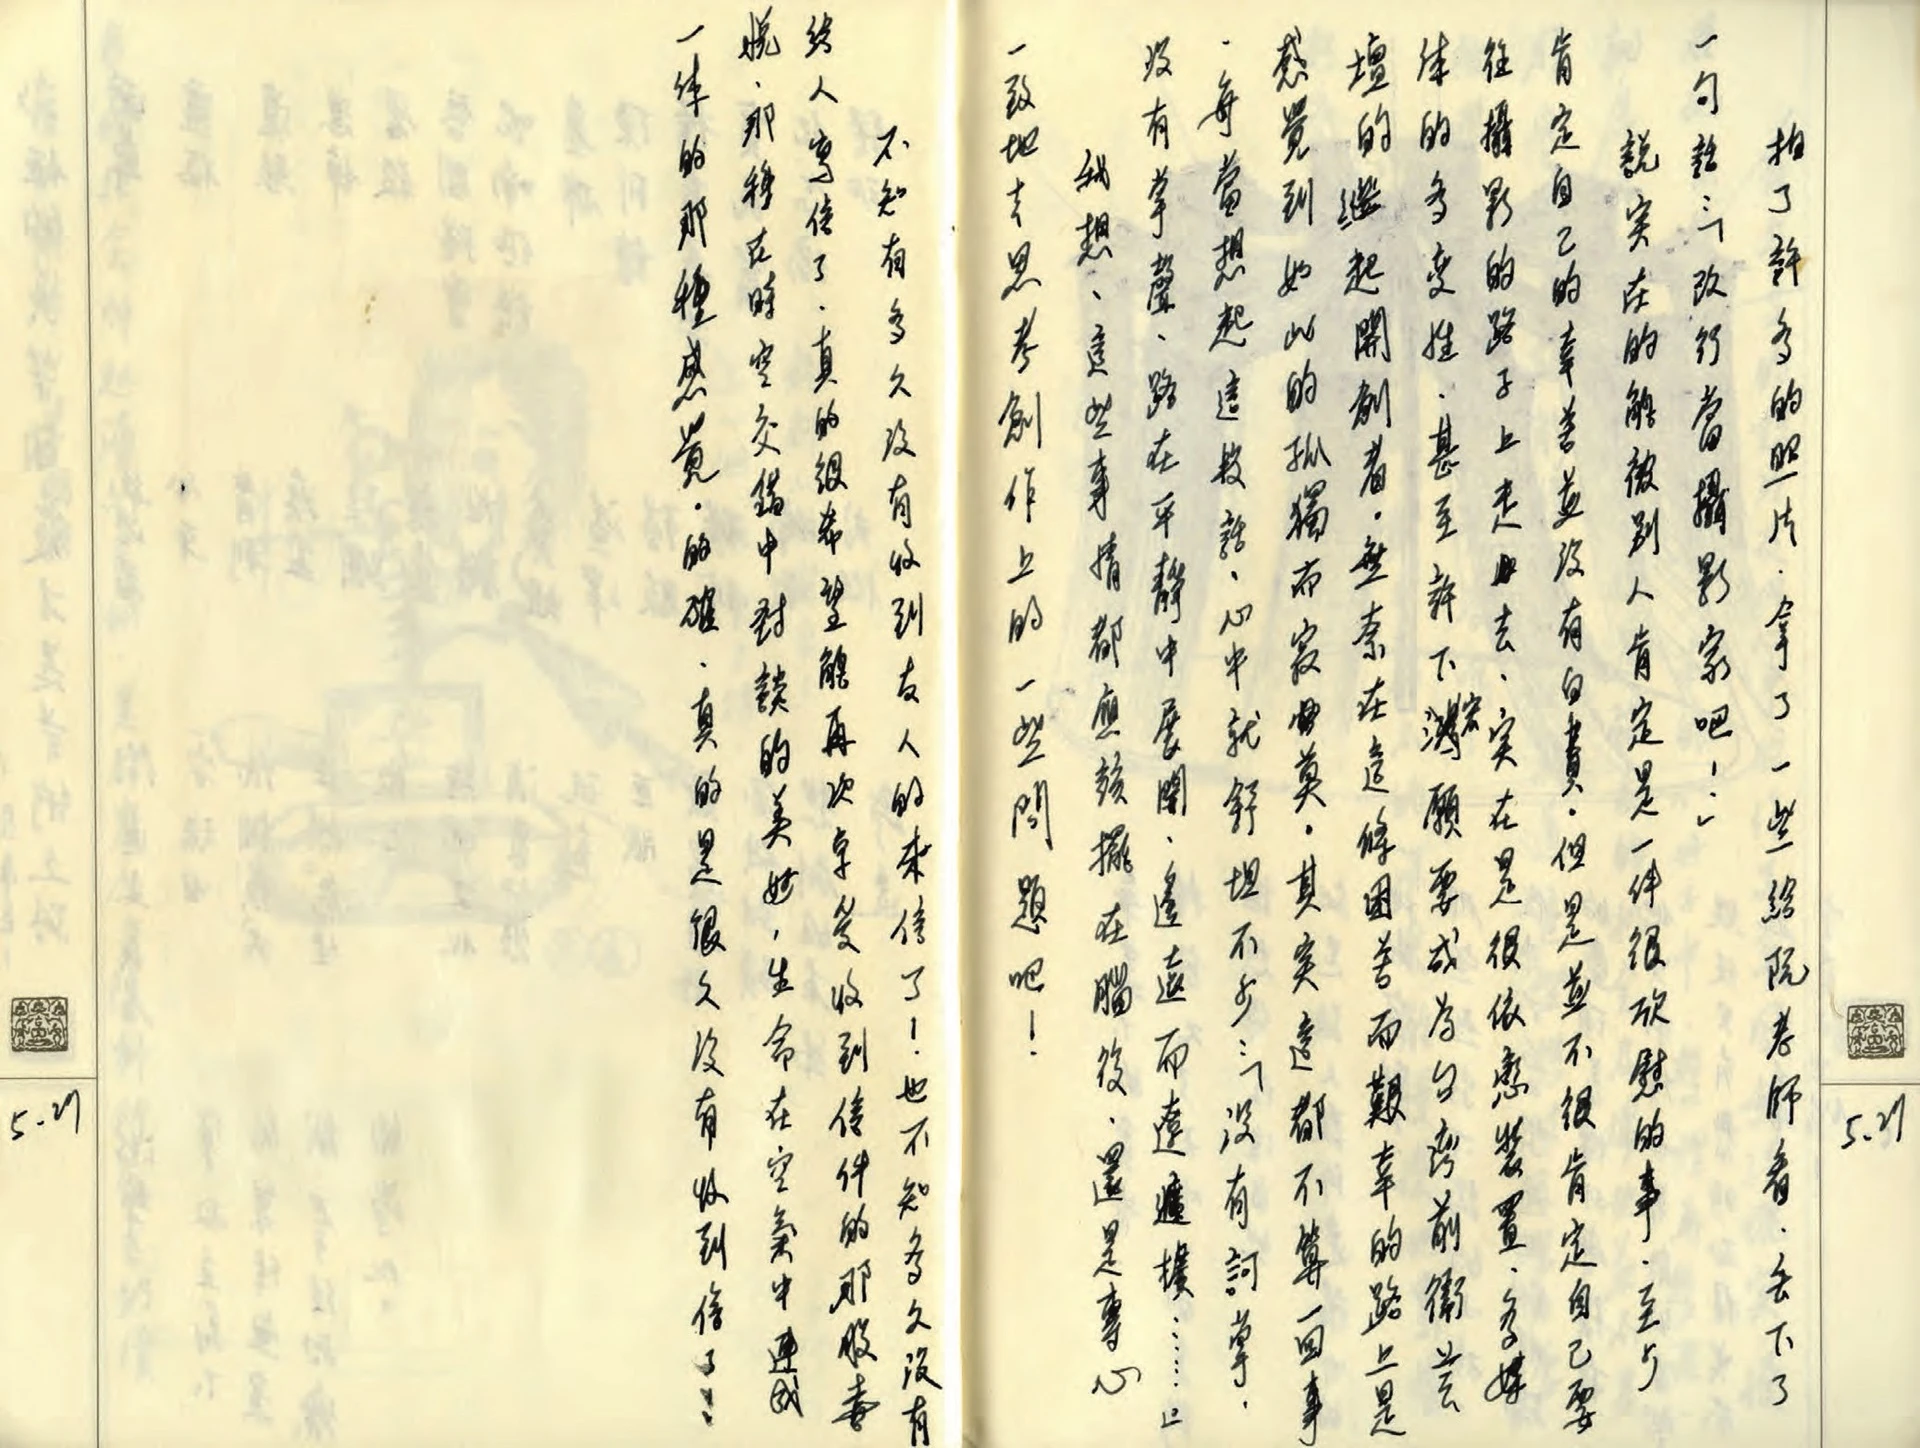 拍了許多的照片．拿了一些給阮老師看．丟下了
一句話：「改行當攝影家吧！」
說实在的能被別人肯定是一件很欣慰的事．至少
肯定自己的辛苦並沒有白費．但是並不很肯定自己要
往攝影的路子上走去、实在是很依戀裝置、多媒
体的多変性．甚至許下宏願要成為台灣前衛芸
壇的継起開創者．無奈在這條困苦而艱辛的路上是
感覺到如此的孤獨而寂寞．其实這都不算一回事
．每當想起這段話．心中就舒坦不少：「沒有訶掌．
沒有掌聲、路在平靜中展開、遙遠而遼曠……」
我想、這些事情都應該擺在腦後．還是專心
一致地去思考創作上的一些問題吧！
不知有多久沒有收到友人的來信了！也不知多久沒有
給人寫信了．真的很希望能再次享受收到信件的那股喜
悅．那種在時空交錯中對談的美妙，生命在空氣中連成
一体的那種感覺．的確．真的是很久沒有收到信了！
5.27
5.27